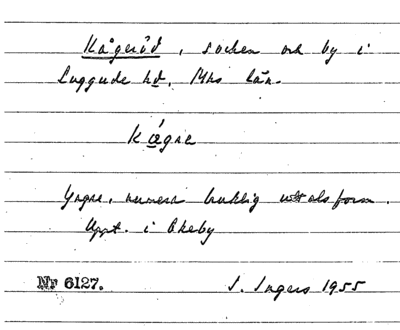 Kågeröd, socken och by i
Luggude hd. Mhs län.
Kǽgne
Yngre, numera bruklig uttalsform.
Uppt. i Åkeby
Nr 6127. I. Ingers 1955